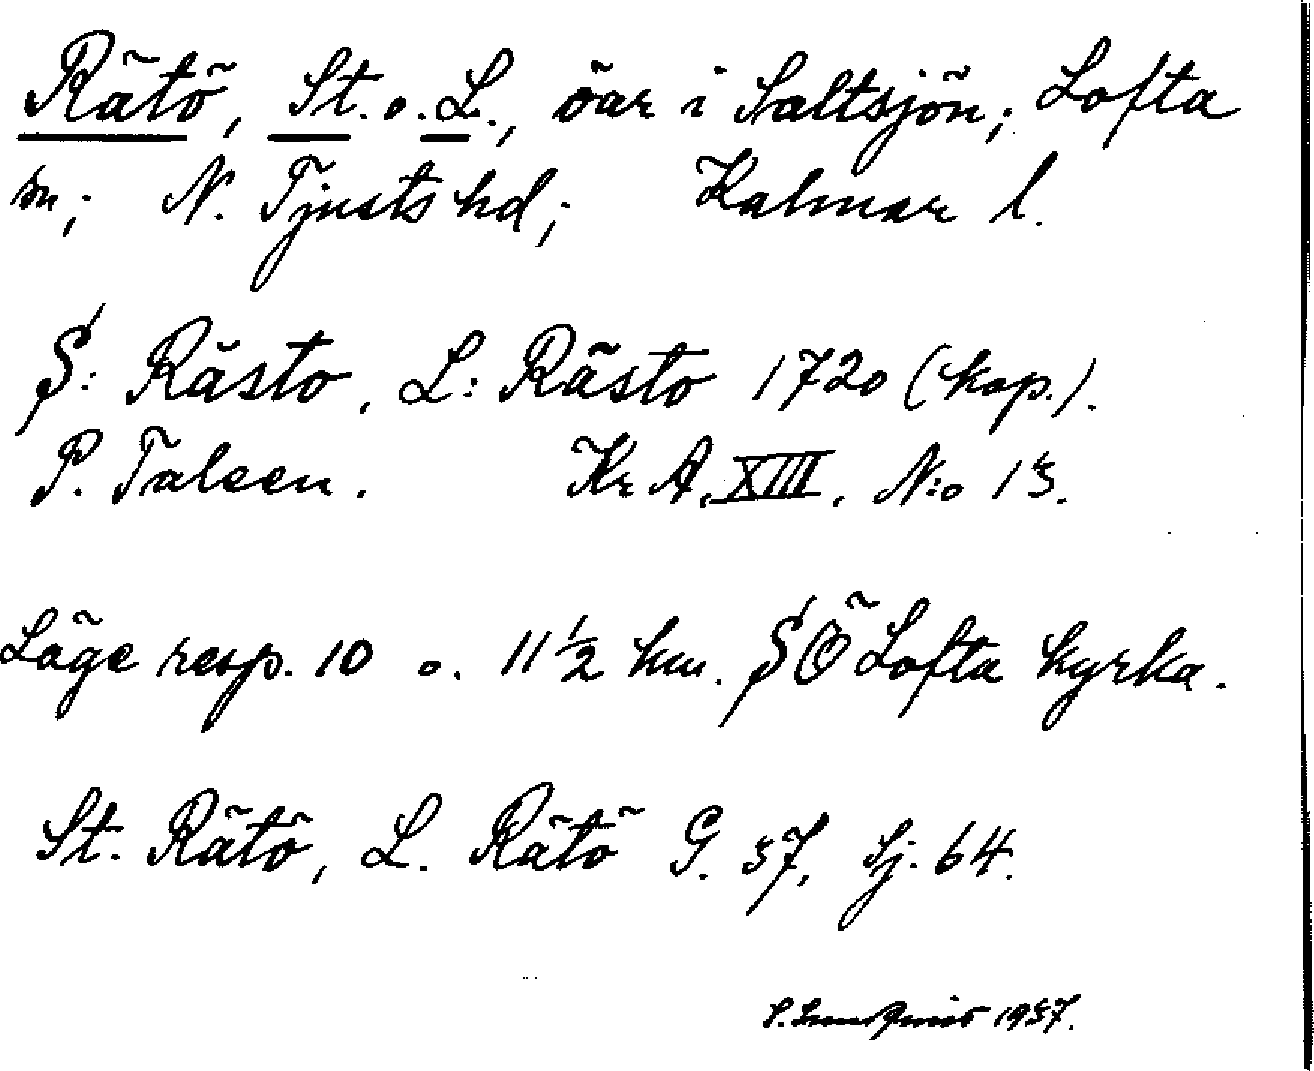 Rätö, St. o. L., öar i Saltsjön; Lofta
sn; N. Tjusts hd; Kalmar l.
S: Rästo, L: Rästo 1720 (kop.).
P. Taleen. Kr A. XIII. N:o 13.
Läge resp. 10 o. 11 1/2 km. SÖ Lofta kyrka.
St. Rätö, L. Rätö G. 57, Sj. 64.
1937.